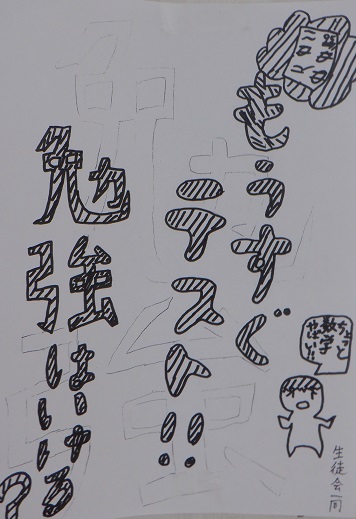 もうすぐ
テスト!!
勉強はいける?
ちょっと
数学
やばい!!
生徒会一同